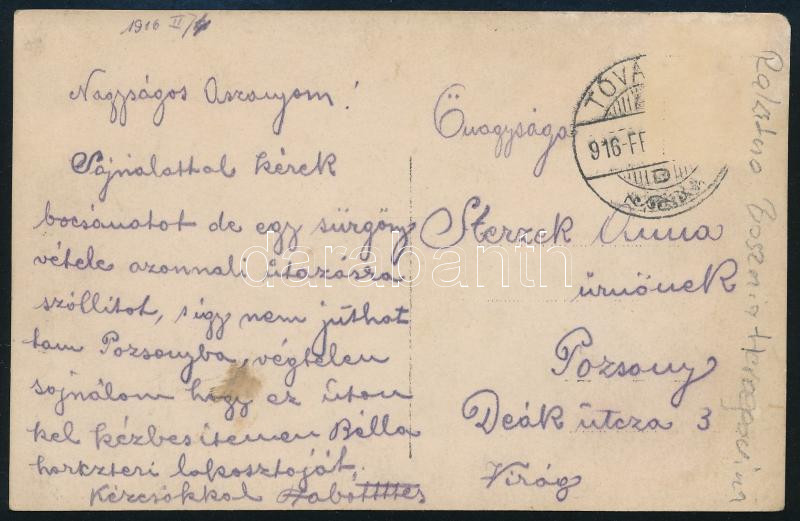 1916 II/4
Nagyságos Aszonyom!
Sajnalattal kérek
bocsánatot de egy sürgöny
vétele azonnali útazásra
szóllitot, s így nem júthat
tam Pozsonyba, végtelen
sajnálom hogy ez úton
kel kézbesitenem Bélla
lakosztoját,
Kézcsókkal
Őnagysága
Sterzek Anna
úrnőnek
Pozsony
Deák útcza 3
Virág
TOVA
916-FE
D
darabanth.com